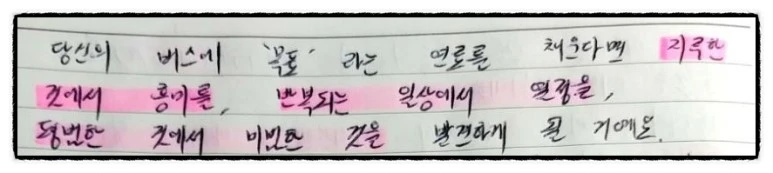 당신의 버스에 '목표' 라는 연료를 채운다면 지루한
것에서 흥미를, 반복되는 일상에서 열정을,
평범한 것에서 비범한 것을 발견하게 될 거예요.